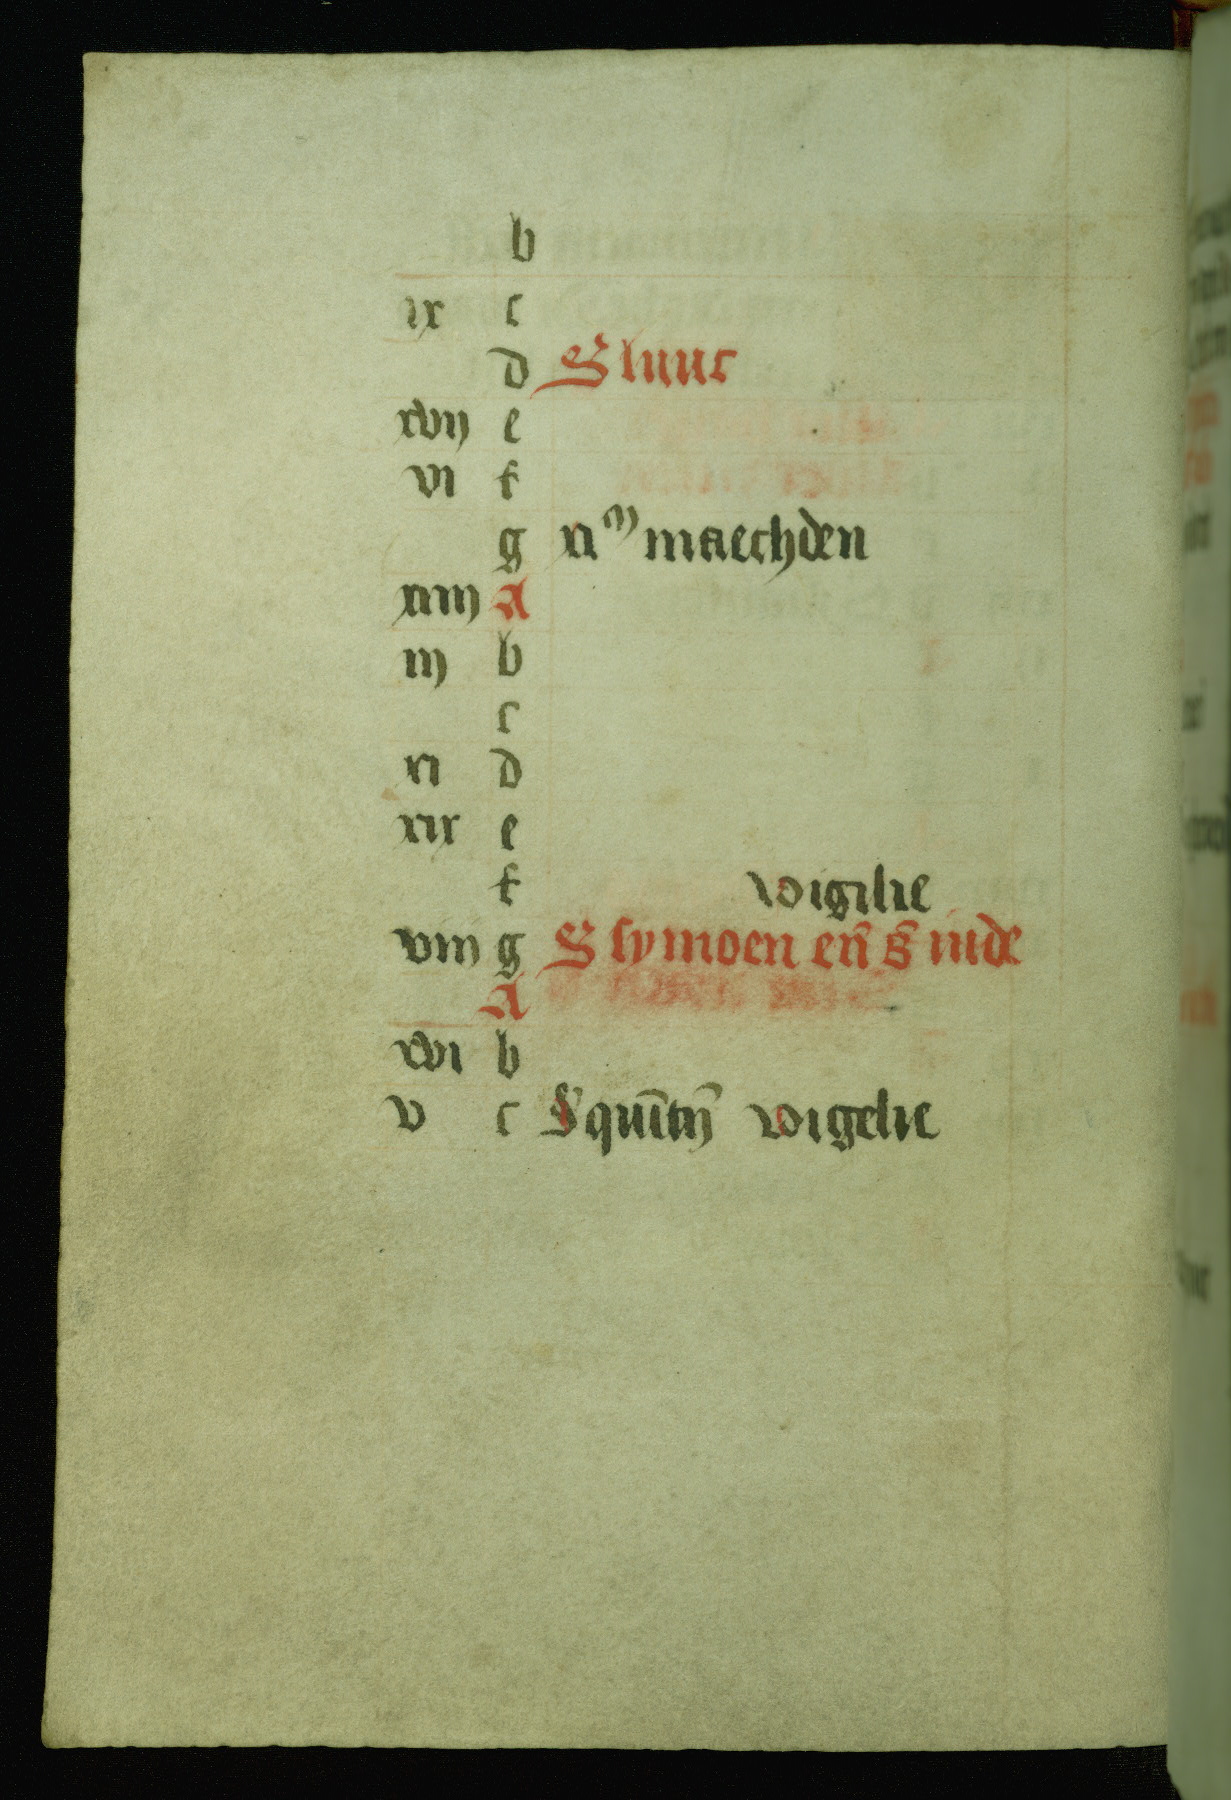 b
ix c
d S luuc
xvij e
vi f
g xi ᵐ maechden
xiiij A
iij b
c
xi d
xix e
f vigilie
viij g S symoen eñ s̄ iude
A
xvi b
v c S quītij vigelie